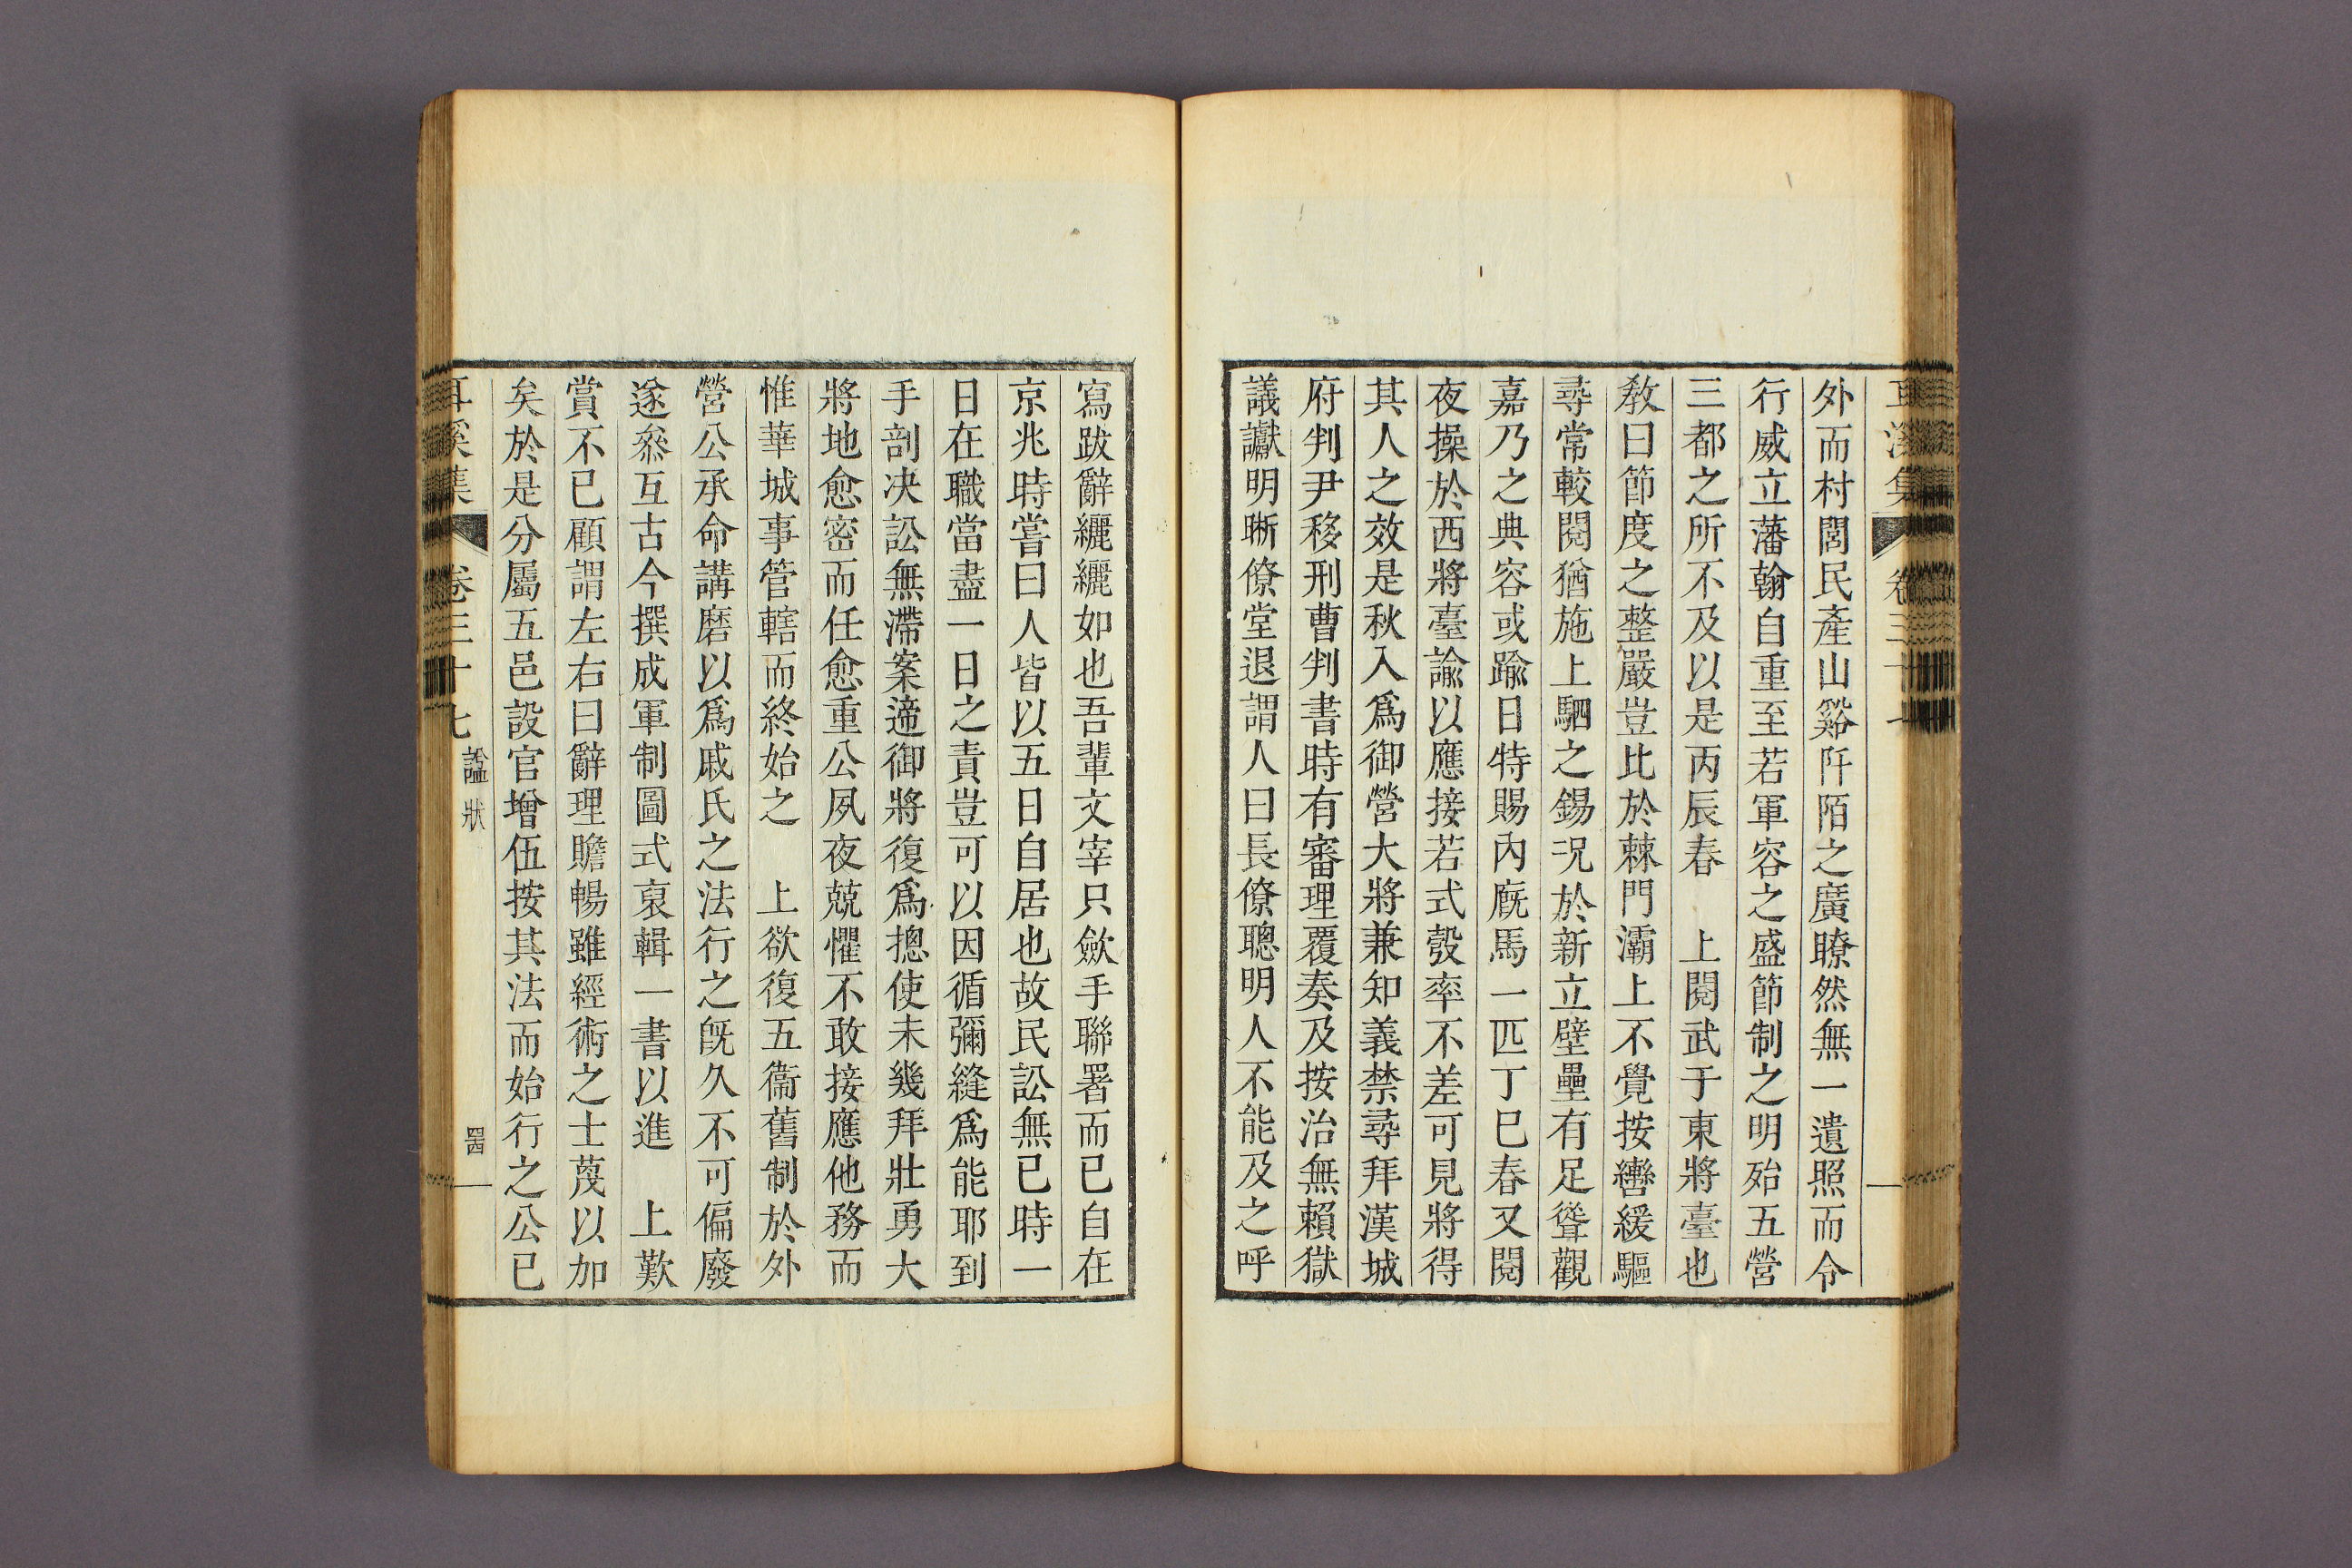 外而村閭民產山谿阡陌之廣瞭然無一遺照而令
行威立藩翰自重至若軍容之盛節制之明殆五營
三都之所不及以是丙辰春　上閱武于東將臺也
敎曰節度之整嚴豈比於棘門灞上不覺按轡緩驅
尋常較閱猶施上駟之錫况於新立壁壘有足聳觀
嘉乃之典容或踰日特賜內廐馬一匹丁巳春又閱
夜操於西將臺諭以應接若式彀率不差可見將得
其人之效是秋入爲御營大將兼知義禁尋拜漢城
府判尹移刑曹判書時有審理覆奏及按治無賴獄
議讞明晣僚堂退謂人曰長僚聰明人不能及之呼
寫跋辭纚纚如也吾輩文宰只斂手聯署而已自在
京兆時嘗曰人皆以五日自居也故民訟無已時一
日在職當盡一日之責豈可以因循彌縫爲能耶到
手剖决訟無滯案遆御將復爲摠使未幾拜壯勇大
將地愈密而任愈重公夙夜兢懼不敢接應他務而
惟華城事管轄而終始之　上欲復五衞舊制於外
營公承命講磨以爲戚氏之法行之旣久不可偏廢
遂叅互古今撰成軍制圖式裒輯一書以進　上歎
賞不已顧謂左右曰辭理贍暢雖經術之士蔑以加
矣於是分屬五邑設官增伍按其法而始行之公已
耳溪集　卷三十七　諡狀　四